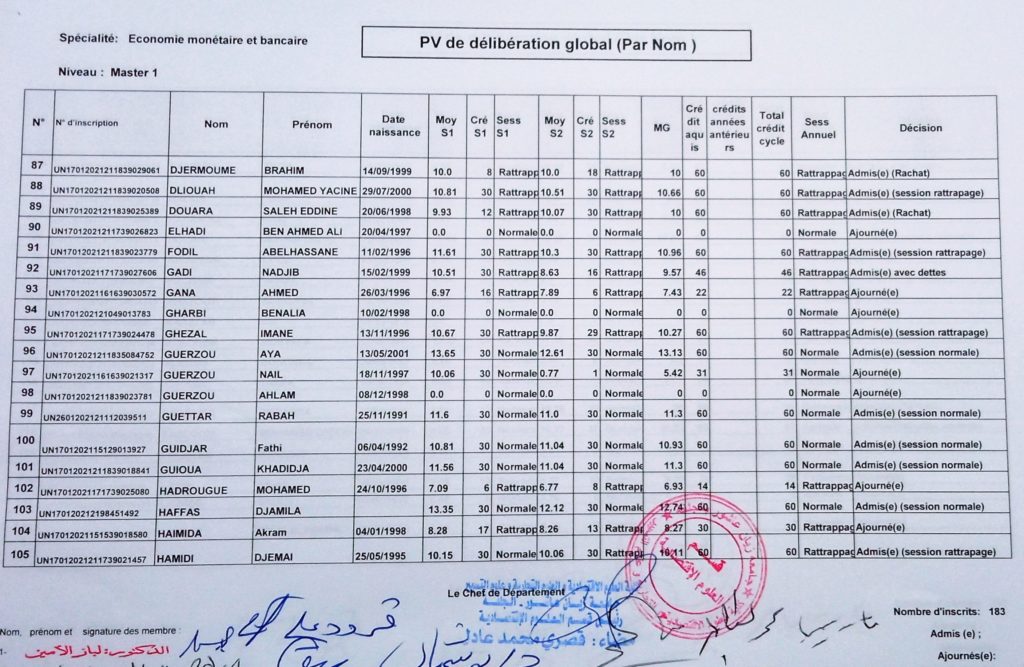 Spécialité: Economie monétaire et bancaire
PV de délibération global (Par Nom )
Niveau : Master 1
N° N° d'inscription Nom Prénom Date naissance Moy S1 Cré S1 Sess S1 Moy S2 Cré S2 Sess S2 MG Cré dit aqu is crédits années antérieu rs Total crédit cycle Sess Annuel Décision
87 UN17012021211839029061 DJERMOUME BRAHIM 14/09/1999 10.0 8 Rattrapp 10.0 18 Rattrapp 10 60 60 Rattrappag Admis(e) (Rachat)
88 UN17012021211839020508 DLIOUAH MOHAMED YACINE 29/07/2000 10.81 30 Rattrapp 10.51 30 Rattrapp 10.66 60 60 Rattrappag Admis(e) (session rattrapage)
89 UN17012021211839025389 DOUARA SALEH EDDINE 20/06/1998 9.93 12 Rattrapp 10.07 30 Rattrapp 10 60 60 Rattrappag Admis(e) (Rachat)
90 UN17012021211739026823 ELHADI BEN AHMED ALI 20/04/1997 0.0 0 Normale 0.0 0 Normale 0 0 0 Normale Ajourné(e)
91 UN17012021211839023779 FODIL ABELHASSANE 11/02/1996 11.61 30 Rattrapp 10.3 30 Rattrapp 10.96 60 60 Rattrappag Admis(e) (session rattrapage)
92 UN17012021171739027606 GADI NADJIB 15/02/1999 10.51 30 Rattrapp 8.63 16 Rattrapp 9.57 46 46 Rattrappag Admis(e) avec dettes
93 UN17012021161639030572 GANA AHMED 26/03/1996 6.97 16 Rattrapp 7.89 6 Rattrapp 7.43 22 22 Rattrappag Ajourné(e)
94 UN1701202121049013783 GHARBI BENALIA 10/02/1998 0.0 0 Normale 0.0 0 Normale 0 0 0 Normale Ajourné(e)
95 UN17012021171739024478 GHEZAL IMANE 13/11/1996 10.67 30 Rattrapp 9.87 29 Rattrapp 10.27 60 60 Rattrappag Admis(e) (session rattrapage)
96 UN17012021211835084752 GUERZOU AYA 13/05/2001 13.65 30 Normale 12.61 30 Normale 13.13 60 60 Normale Admis(e) (session normale)
97 UN17012021161639021317 GUERZOU NAIL 18/11/1997 10.06 30 Normale 0.77 1 Normale 5.42 31 31 Normale Ajourné(e)
98 UN17012021211839023781 GUERZOU AHLAM 08/12/1998 0.0 0 Normale 0.0 0 Normale 0 0 0 Normale Ajourné(e)
99 UN26012021211112039511 GUETTAR RABAH 25/11/1991 11.6 30 Normale 11.0 30 Normale 11.3 60 60 Normale Admis(e) (session normale)
100 UN1701202115129013927 GUIDJAR Fathi 06/04/1992 10.81 30 Normale 11.04 30 Normale 10.93 60 60 Normale Admis(e) (session normale)
101 UN17012021211839018841 GUIOUA KHADIDJA 23/04/2000 11.56 30 Normale 11.04 30 Normale 11.3 60 60 Normale Admis(e) (session normale)
102 UN17012021171739025080 HADROUGUE MOHAMED 24/10/1996 7.09 6 Rattrapp 6.77 8 Rattrapp 6.93 14 14 Rattrappag Ajourné(e)
103 UN1701202198451492 HAFFAS DJAMILA 13.35 30 Normale 12.12 30 Normale 12.74 60 60 Normale Admis(e) (session normale)
104 UN17012021151539018580 HAIMIDA Akram 04/01/1998 8.28 17 Rattrapp 8.26 13 Rattrapp 8.27 30 30 Rattrappag Ajourné(e)
105 UN17012021211739021457 HAMIDI DJEMAI 25/05/1995 10.15 30 Normale 10.06 30 Rattrapp 10.11 60 60 Rattrappag Admis(e) (session rattrapage)
قسم
العلوم الاقتصادية
كلية العلوم الاقتصادية و العلوم التجارية و علوم التسيير
Le Chef de Département
جامعة زيان عاشور - الجلفة
رئيس قسم العلوم الاقتصادية
إمضاء : قصري محمد عادل
Nombre d'inscrits: 183
Nom, prénom et signature des membre :
1- الدكتور: لباز الأمين
Admis (e) ;
Ajournés(e):